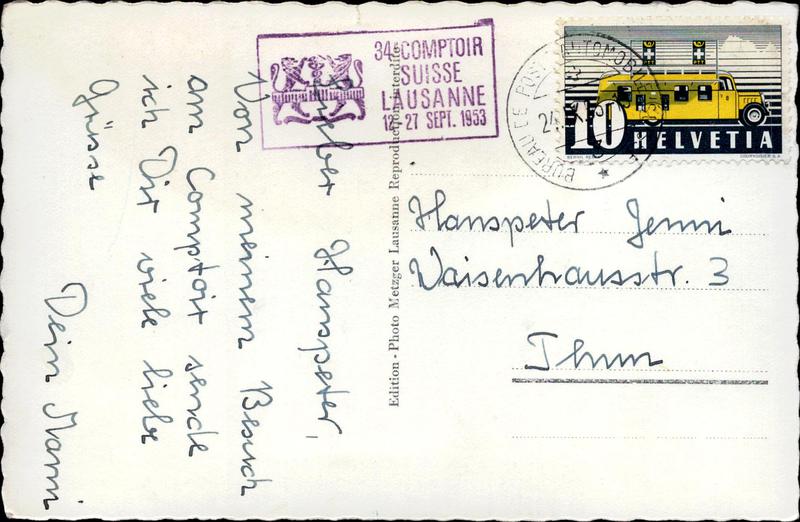 34e COMPTOIR
SUISSE
LAUSANNE
12-27 SEPT. 1953
BUREAU DE POSTE AUTOMOBILE
10 HELVETIA
COURVOISIER S.A.
Lieber Hanspeter,
Von meinem Besuch
am Comptoir sende
ich Dir viele liebe
Grüsse
Dein Mami
Edition - Photo Metzger Lausanne Reproduction interdite
Hanspeter Jenni
Waisenhausstr. 3
Thun